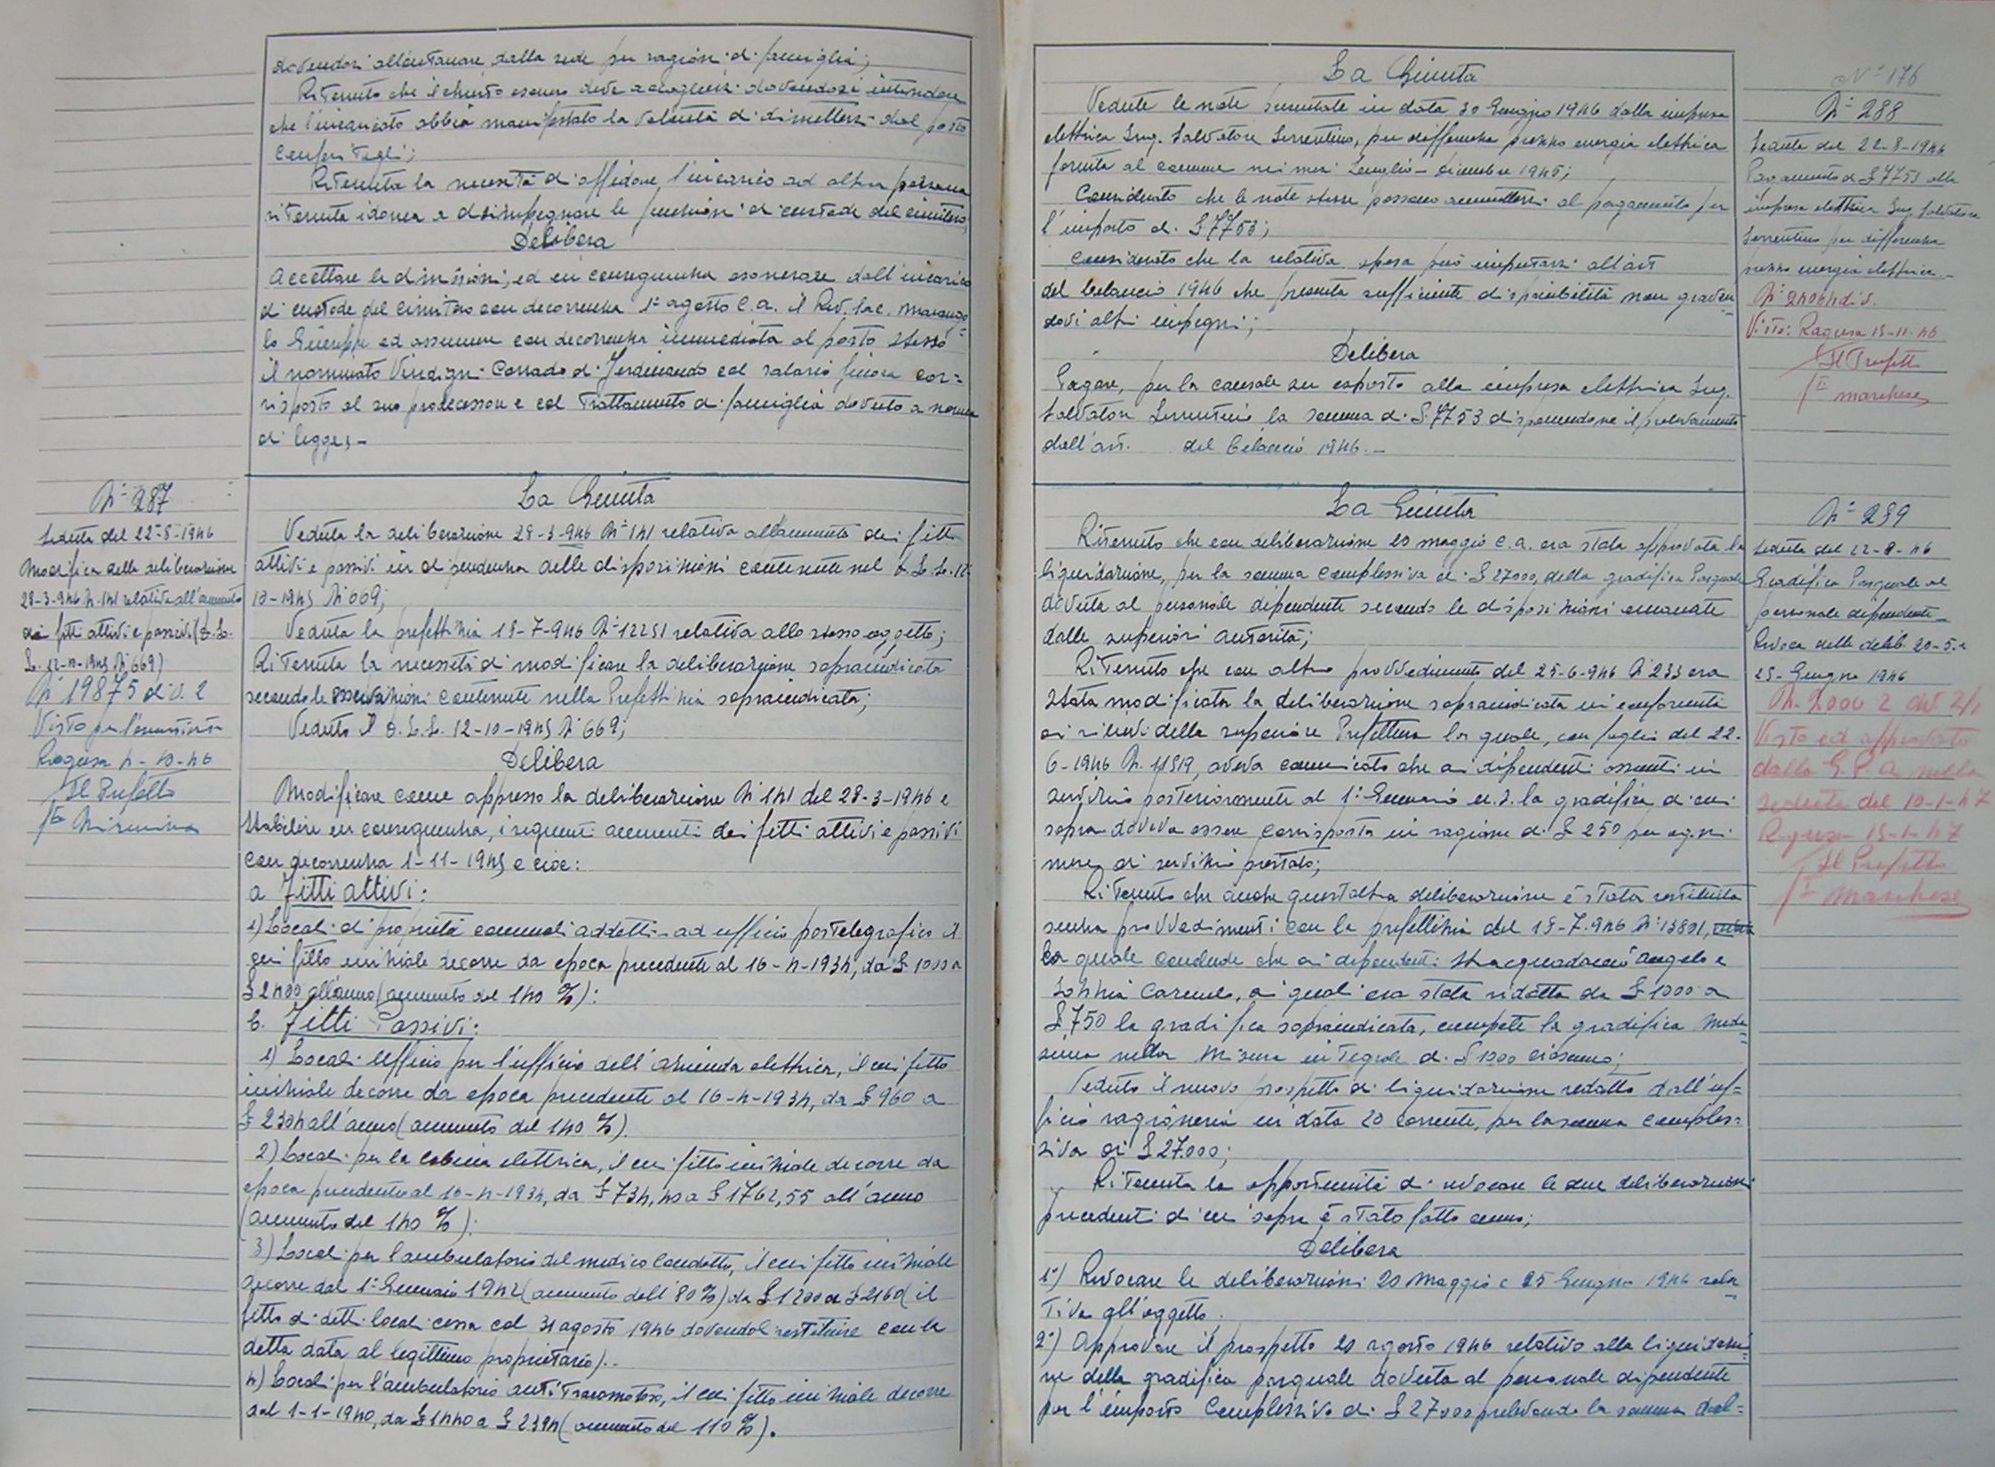 dovendosi allontanare dalla sede per ragioni di famiglia;
Ritenuto che il chiesto esonero deve accogliersi dovendosi intendere
che l'incaricato abbia manifestato la volontà di dimettersi dal posto
conferitogli;
Ritenuta la necessità di affidare l'incarico ad altra persona
ritenuta idonea a disimpegnare le funzioni di custode del cimitero
Delibera
Accettare le dimissioni, ed in conseguenza esonerare dall'incarico
di custode del Cimitero con decorrenza 1° agosto c.a. il Rev. Sac.
Giuseppe ed assumere con decorrenza immediata al posto stesso
il nominato Vindigni Corrado di Ferdinando col salario finora cor=
risposto al suo predecessore e col trattamento di famiglia dovuto a norma
di legge.-
N° 287
Seduta del 22-8-1946
Modifica della deliberazione
28-3-946 N. 141 relativa all'aumento
dei fitti attivi e passivi (D.L.
L. 12-10-1945 N° 669)
N° 19875 div. 2
Visto per l'esecutività
Ragusa 4-10-46
Il Prefetto
La Giunta
Veduta la deliberazione 28-3-946 N° 141 relativa all'aumento dei fitti
attivi e passivi in dipendenza delle disposizioni contenute nel D.L.L. 12
10-1945 N° 669;
Veduta la prefettizia 15-7-946 N° 12251 relativa allo stesso oggetto;
Ritenuta la necessità di modificare la deliberazione sopraindicata
secondo le osservazioni contenute nella Prefettizia sopraindicata;
Veduto il D.L.L. 12-10-1945 N° 669;
Delibera
Modificare come appresso la deliberazione N° 141 del 28-3-1946 e
stabilire in conseguenza, i seguenti aumenti dei fitti attivi e passivi
con decorrenza 1-11-1945 e cioè:
a Fitti attivi:
1) Locali di proprietà comunali addetti ad ufficio postelegrafico il
cui fitto iniziale decorre da epoca precedente al 16-4-1934, da £ 1000 a
£ 2400 all'anno (aumento del 140 %):
b. Fitti Passivi:
1) Locali ufficio per l'ufficio dell'azienda elettrica, il cui fitto
iniziale decorre da epoca precedente al 16-4-1934, da £ 960 a
£ 2304 all'anno (aumento del 140 %).
2) Locali per la cabina elettrica, il cui fitto iniziale decorre da
epoca precedente al 16-4-1934, da £ 734,40 a £ 1762,55 all'anno
(aumento del 140 %).
3) Locali per l'ambulatorio del medico condotto, il cui fitto iniziale
decorre dal 1° Gennaio 1942 (aumento dell'80 %) da £ 1200 a £ 2160 (il
fitto di detti locali cessa col 31 agosto 1946 dovendoli restituire con la
detta data al legittimo proprietario).-
4) Locali per l'ambulatorio antitracomatoso, il cui fitto iniziale decorre
dal 1-1-1940, da £ 1140 a £ 2394 (aumento del 110 %).
La Giunta
Vedute le note presentate in data 30 Giugno 1946 dalla impresa
elettrica Ing. Salvatore Sorrentino, per differenza prezzo energia elettrica
fornita al comune nei mesi Luglio - Dicembre 1945;
Considerato che le note stesse possono ammettersi al pagamento per
l'importo di £ 7753;
Considerato che la relativa spesa può imputarsi all'art
del bilancio 1946 che presenta sufficiente disponibilità non graven
dovi altri impegni;
Delibera
Pagare, per la causale su esposta alla impresa elettrica Ing.
Salvatore Sorrentino la somma di £ 7753 disponendone il prelevamento
dall'art. del bilancio 1946.-
N° 176
N° 288
Seduta del 22-8-1946
Pagamento di £ 7753 alla
impresa elettrica Ing. Salvatore
Sorrentino per differenza
prezzo energia elettrica.-
Visto: Ragusa 15-11-46
Il Prefetto
Marchese
La Giunta
Ritenuto che con deliberazione 20 maggio c.a. era stata approvata la
liquidazione, per la somma complessiva di £ 27000, della gratifica Pasquale
dovuta al personale dipendente secondo le disposizioni emanate
dalle superiori autorità;
Ritenuto che con altro provvedimento del 25-6-946 N° 233 era
stata modificata la deliberazione sopraindicata in conformità
ai rilievi della superiore Prefettura la quale, con foglio del 22-
6-1946 N. 11519, aveva comunicato che ai dipendenti assunti in
servizio posteriormente al 1° Gennaio u.s. la gratifica di cui
sopra doveva essere corrisposta in ragione di £ 250 per ogni
mese di servizio prestato;
Ritenuto che anche quest'altra deliberazione è stata restituita
senza provvedimenti con la prefettizia del 15-7-946 N° 13801,
la quale conclude che ai dipendenti Stracquadaneo Angelo e
Carmelo, ai quali era stata ridotta da £ 1000 a
£ 750 la gratifica sopraindicata, compete la gratifica mede
sima nella misura integrale di £ 1000 ciascuno;
Veduto il nuovo prospetto di liquidazione redatto dall'uf=
ficio ragioneria in data 20 corrente, per la somma comples=
siva di £ 27.000;
Ritenuta la opportunità di revocare le due deliberazioni
precedenti di cui sopra è stato fatto cenno;
Delibera
1°) Revocare le deliberazioni 20 maggio e 25 Giugno 1946 rela
tive all'oggetto.
2°) Approvare il prospetto 20 agosto 1946 relativo alla liquidazio=
ne della gratifica pasquale dovuta al personale dipendente
per l'importo complessivo di £ 27000 prelevando la somma dal=
N° 289
Seduta del 22-8-46
Gratifica Pasquale al
personale dipendente-
Revoca delle delib. 20-5 e
25-Giugno 1946
Visto ed approvato
dalla G.P.A. nella
seduta del 10-1-47
Ragusa 15-1-47
Il Prefetto
Marchese